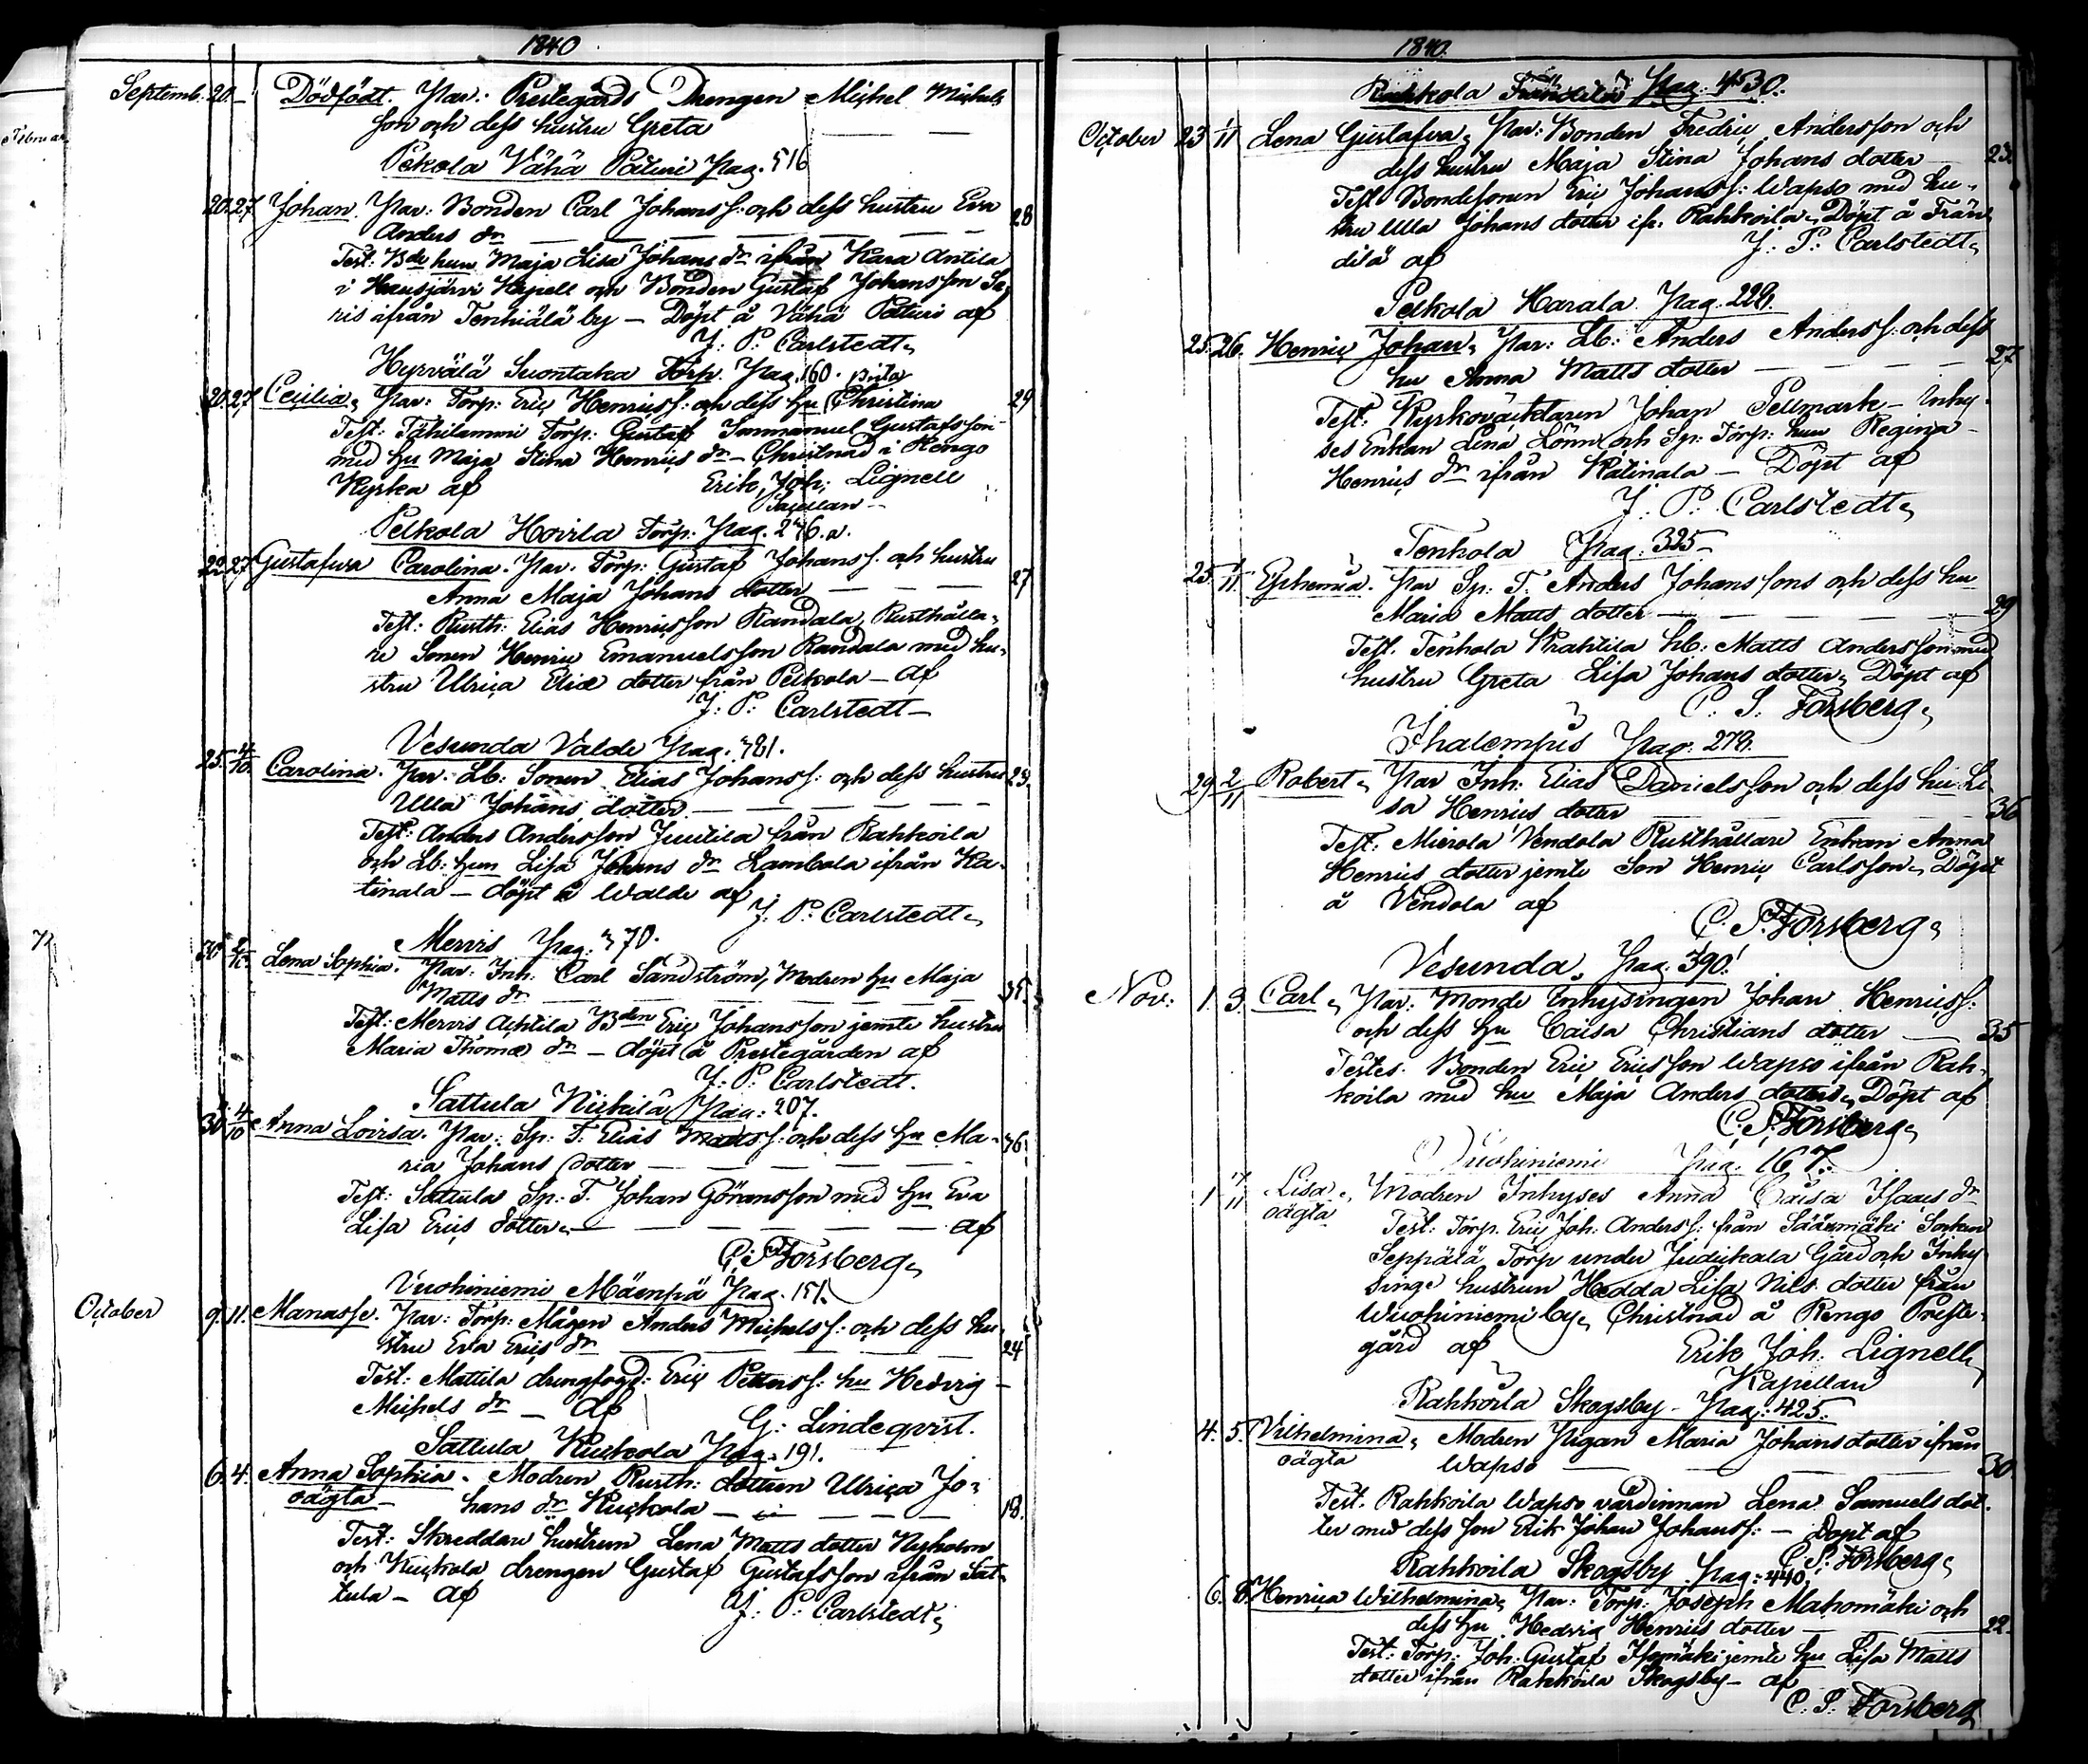 1840
Septemb. 20. — Dödfödt. Par.: Prestegårds Drengen Michel Michels
son och dess hustru Greta — —
Pekola Vähä Paturi Pag. 516
20. 27 Johan. Par: Bonden Carl Johanss: och dess hustru Eva 28
Anders dr — — — — — —
Test: Bde hun Maja Lisa Johans dr ifrån Kara Antila
i Hausjärvi Kapell och Bonden Gustaf Johansson Sa,
ris ifrån Tenhiälä by — Döpt å Vähä Paturi af
J: P: Carlstedt,
Hyrvälä Suontaka Torp. Pag. 160.
20. 27 Cecilia, Par: Torp: Eric Henricss: och dess hu Christina 29
Test: Torp: Gustaf Immanuel Gustafsson
med hu Maja Stina Henrics dr — Christnad i Rengo
Kyrka af Erik Joh: Lignell
Capellan —
Pelkola Hovila Torp. Pag. 276. a.
22 27 Gustafva Carolina. Par. Torp: Gustaf Johanss. och hustru
Anna Maja Johans dotter — — — 27
Test: Rusth: Elias Henricsson Randala, Rusthålla,
re Sonen Henric Emanuelsson Randala med hu,
stru Ulrica Eliæ dotter från Pelkola — af
J: P: Carlstedt —
Vesunda Valde Pag. 381.
25. 4/10. Carolina. Par. Lb: Sonen Elias Johanss: och dess hustru 23.
Ulla Johans dotter — — — —
Test: Anders Andersson Juutila från Rahkoila
och Lb: hun Lisa Johans dr Lambola ifrån Ka,
tinala — döpt å Walde af
J. P: Carlstedt,
Mervis Pag: 370.
30 2/10 Lena Sophia. Par: Inh: Carl Sandström, Modren hu Maja
Matts dr — — — — — 35.
Test: Mervis Achtila Bden Eric Johansson jemte hustru
Maria Thomæ dr — döpt å Prestegården af
J: P: Carlstedt.
Sattula Nickilä Pag: 207.
30 4/10 Anna Lovisa. Par: Sp: T: Elias Mattss: och dess hu Ma- 36
ria Johans dotter — — — —
Test: Sattula Sp: T. Johan Göransson med hu Eva
Lisa Erics dotter, — — — — — af
C: P: Forsberg,
Vuohiniemi Mäenpä Pag. 151.
October 9. 11. Manasse. Par: Torp: Mågen Anders Michelss: och dess hu,
stru Eva Erics dr — — — — 24
Test: Mattila drengfogd: Eric Petterss: hu Hedvig —
Michels dr — af G: Lindeqvist.
Sattula Kuckola Pag. 191.
6. 4. Anna Sophia. Modren Rusth: dottren Ulrica Jo,
oägta — hans dr Kuckola — — — — 18.
Test: Skreddare hustrun Lena Matts dotter Nyholm
och Kuckola drengen Gustaf Gustafsson ifrån Sat,
tula — af J: P: Carlstedt,
1840.
Rahkoila Frändilä Pag: 430.
October 23 1/11 Lena Gustafva, Par: Bonden Fredric Andersson och
dess hustru Maja Stina Johans dotter — 23.
Test Bondesonen Eric Johanss: Wapso med hu,
stru Ulla Johans dotter ifr. Rahkoila, Döpt å Frän,
dilä af J. P: Carlstedt,
Pelkola Harala. Pag. 229.
25. 26. Henric Johan, Par: Lb: Anders Anderss: och dess
hu Anna Matts dotter — — — 27
Test: Kyrkoväcktaren Johan Sellmark — Inhy,
ses Enkan Lena Lönn och Sp: Torp: hun Regina —
Henrics dr ifrån Katinala — Döpt af
J. P: Carlstedt,
Tenhola Pag: 325 —
25. 1/11. Ephemia. Par Sp: T. Anders Johanssons och dess hu
Maria Matts dotter — — — — 29
Test. Tenhola Krahtila Lb: Matts Andersson med
hustru Greta Lisa Johans dotter, Döpt af
C. P. Forsberg,
Ihalempus Pag: 278.
29 2/11 Robert, Par Inh: Elias Danielsson och dess hu Li-
sa Henrics dotter — — — 36
Test. Mierola Vendola Rusthållare Enkan Anna
Henrics dotter jemte Son Henric Carlsson, Döpt
å Vendola af
C. P. Forsberg,
Vesunda, Pag. 390.
Nov: 1. 3. Carl, Par: Monde Inhysingen Johan Henricss:
och dess hu Caisa Christians dotter — 35
Testes. Bonden Eric Ericsson Wapso ifrån Rah,
koila med hu Maja Anders dotter, Döpt af
C. P. Forsberg,
Vuohiniemi Pag. 167.
1 7/11 Lisa, Modren Inhyses Anna Caisa Isaacs dr
oägta Test: Torp. Eric Joh. Anderss: från Säärimäki Socken
Seppälä Torp under Judickala Gård och Inhy,
singe hustrun Hedda Lisa Nils dotter från
Wuohiniemi by, Christnad å Rengo Preste,
gård af Erik Joh: Lignell,
Kapellan
Rahkoila Skogsby — Pag: 425.
4. 5. Vilhelmina, Modren Pigan Maria Johans dotter ifrån
oägta Wapso — — — 30
Test. Rahkoila Wapso värdinnan Lena Samuels dot,
ter med dess son Erik Johan Johanss: — Döpt af
C. P. Forsberg,
Rahkoila Skogsby. Pag: 440,
6. 8. Henrica Wilhelmina, Par: Torp: Joseph Mahomäki och
dess hu Hedvig Henrics dotter — — 22.
Test: Torp: Joh: Gustaf Isomäki jemte hu Lisa Matts
dotter ifrån Rahkoila Skogsby — af
C. P. Forsberg,